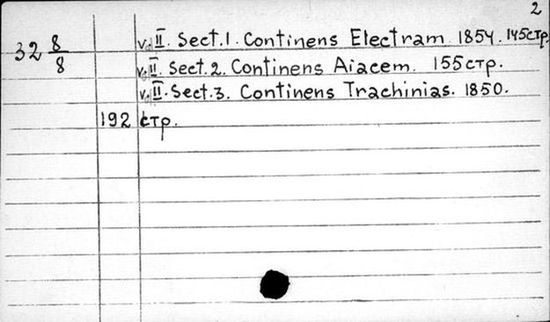 2
32 8/8 v. II. Sect. 1. Continens Electram. 1854. 145стр.
v. II. Sect. 2. Continens Aiacem. 155 стр.
v. II. Sect. 3. Continens Trachinias. 1850.
192 стр.